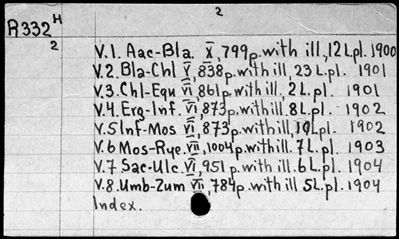 2
R332 H
2
V.1. Aac-Bla. X, 799p. with ill, 12 L.pl. 1900
V.2. Bla-Chl V, 838p. with ill, 23 L.pl. 1901
V.3. Chl-Equ VI 861p. with ill, 2 L.pl. 1901
V.4. Erg-Inf. VI, 873p. with ill. 8 L.pl. 1902
V.5 Inf-Mos VI, 873p. with ill, L.pl. 1902
V.6 Mos-Rye. VII, 1004p. with ill. 7 L.pl. 1903
V.7 Sac-Ulc. VI, 951p. with ill. 6 L.pl. 1904
V.8. Umb-Zum VII, 784p. with ill 5 L.pl. 1904
Index.